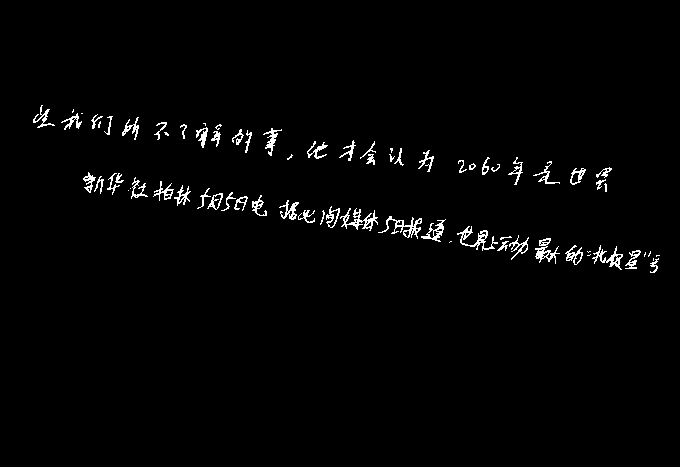 些我们所不了解的事，他才会认为2060年是世界
新华社柏林5月5日电 据此间媒体5日报道，世界上动力最大的“北极星”号